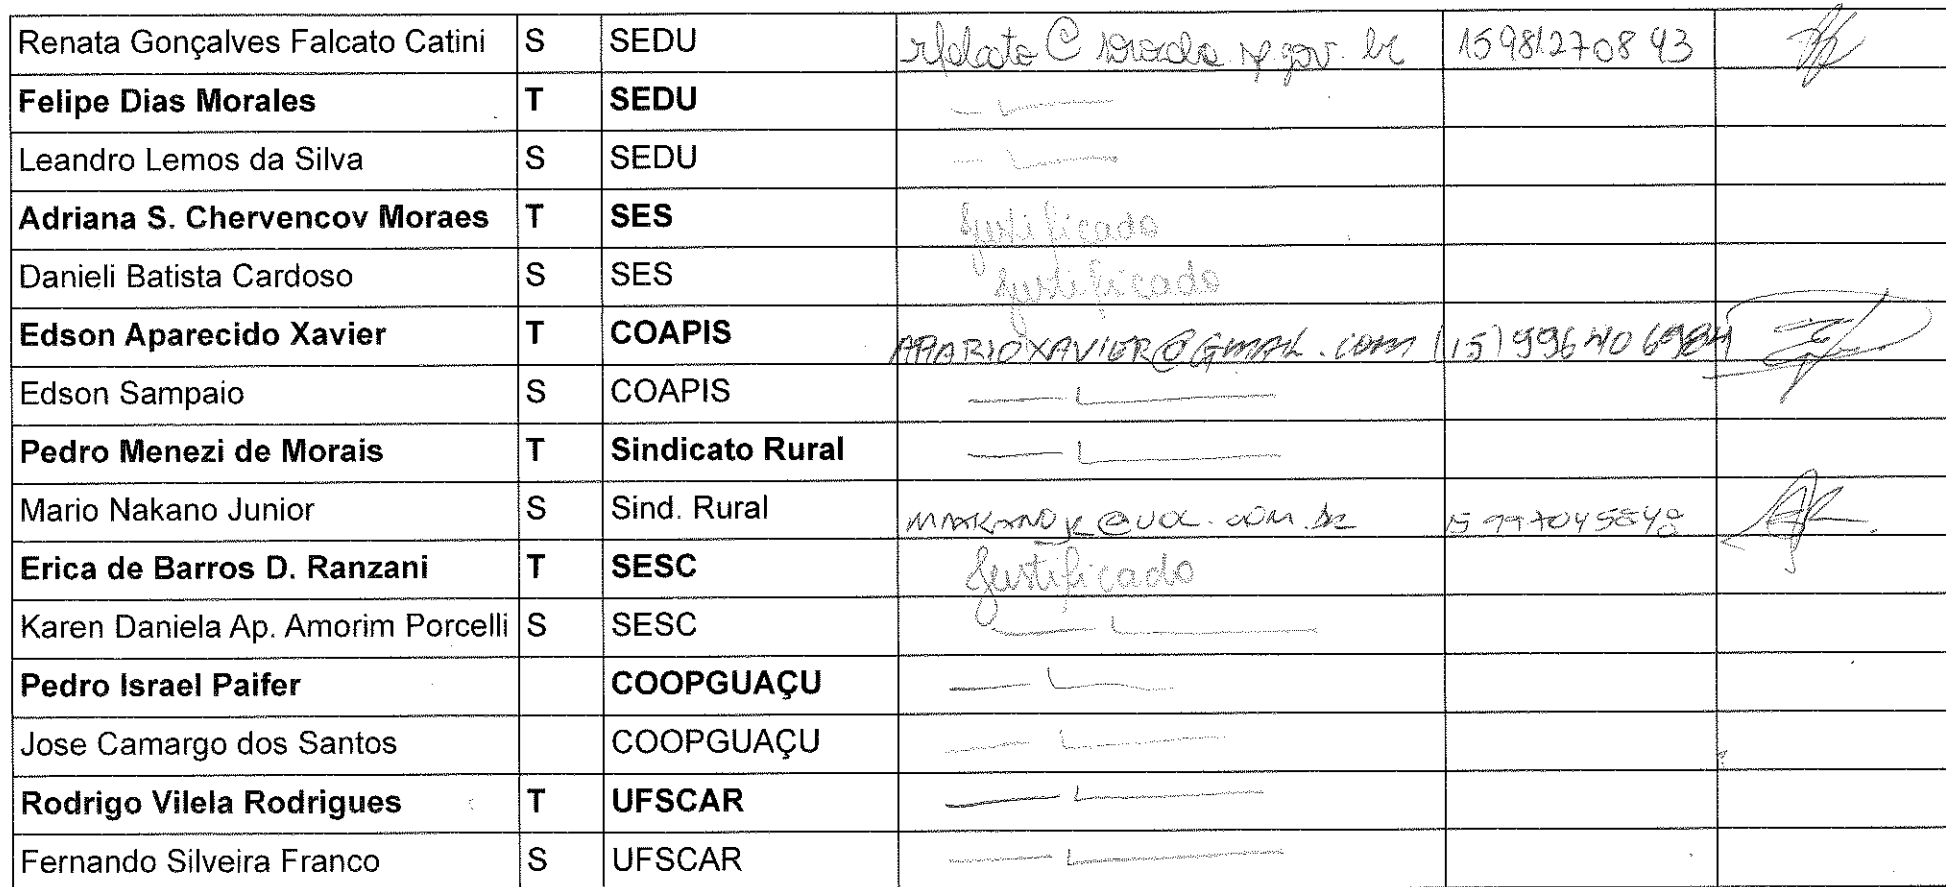 Renata Gonçalves Falcato Catini S SEDU 15981270843
Felipe Dias Morales T SEDU
Leandro Lemos da Silva S SEDU
Adriana S. Chervencov Moraes T SES Justificado
Danieli Batista Cardoso S SES Justificado
Edson Aparecido Xavier T COAPIS (15) 996406984
Edson Sampaio S COAPIS
Pedro Menezi de Morais T Sindicato Rural
Mario Nakano Junior S Sind. Rural
Erica de Barros D. Ranzani T SESC Justificado
Karen Daniela Ap. Amorim Porcelli S SESC
Pedro Israel Paifer COOPGUAÇU
Jose Camargo dos Santos COOPGUAÇU
Rodrigo Vilela Rodrigues T UFSCAR
Fernando Silveira Franco S UFSCAR